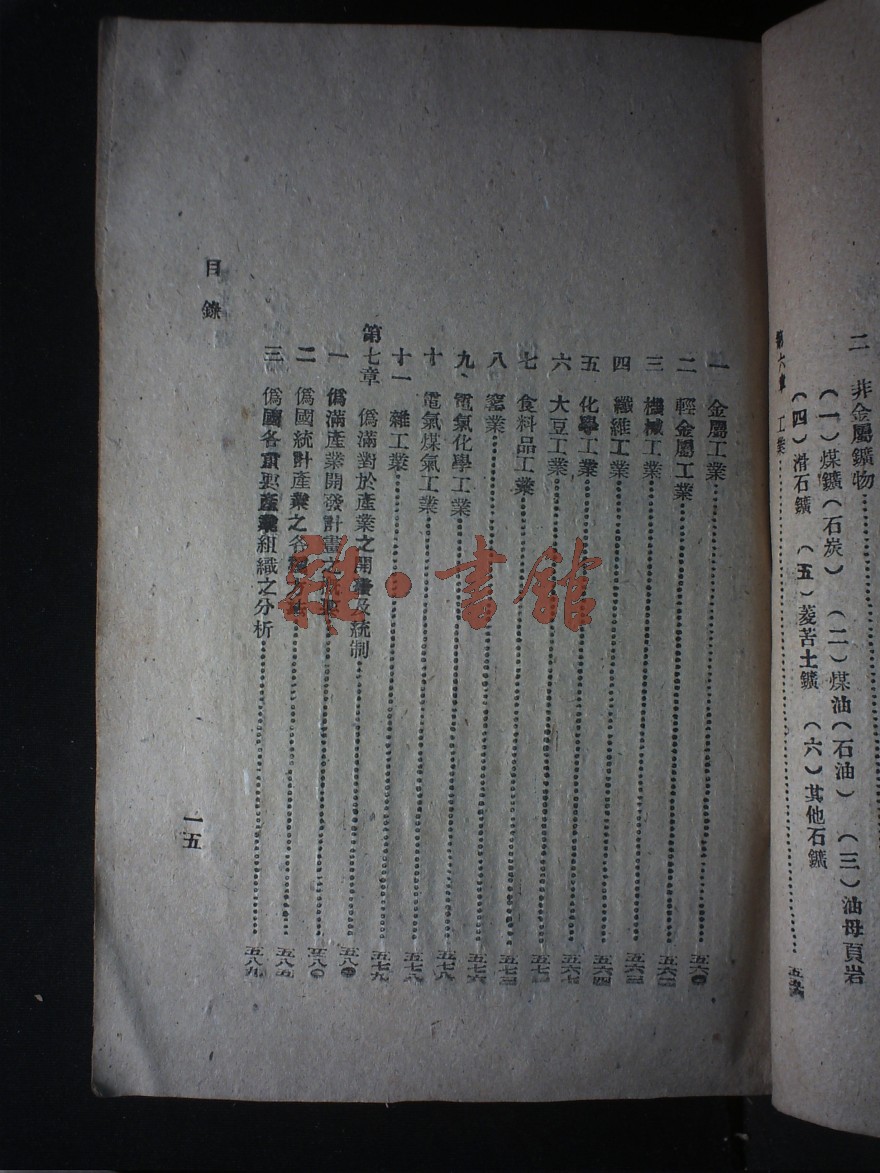 二 非金屬鑛物
(一)煤鑛(石炭) (二)煤油(石油) (三)油母頁岩
(四)滑石鑛 (五)菱苦土鑛 (六)其他石鑛
第六章 工業
一 金屬工業 五六〇
二 輕金屬工業 五六二
三 機械工業 五六三
四 纖維工業 五六四
五 化學工業 五六七
六 大豆工業
七 食料品工業
八 窰業 五七三
九、電氣化學工業 五七六
十 電氣煤氣工業 五七八
十一 雜工業 五七九
第七章 僞滿對於產業之開發及統制 五八〇
一 僞滿產業開發計畫之 五八〇
二 僞國統計產業之各 五八五
三 僞國各重要產業組織之分析 五八九
目錄
一五
雜·書館